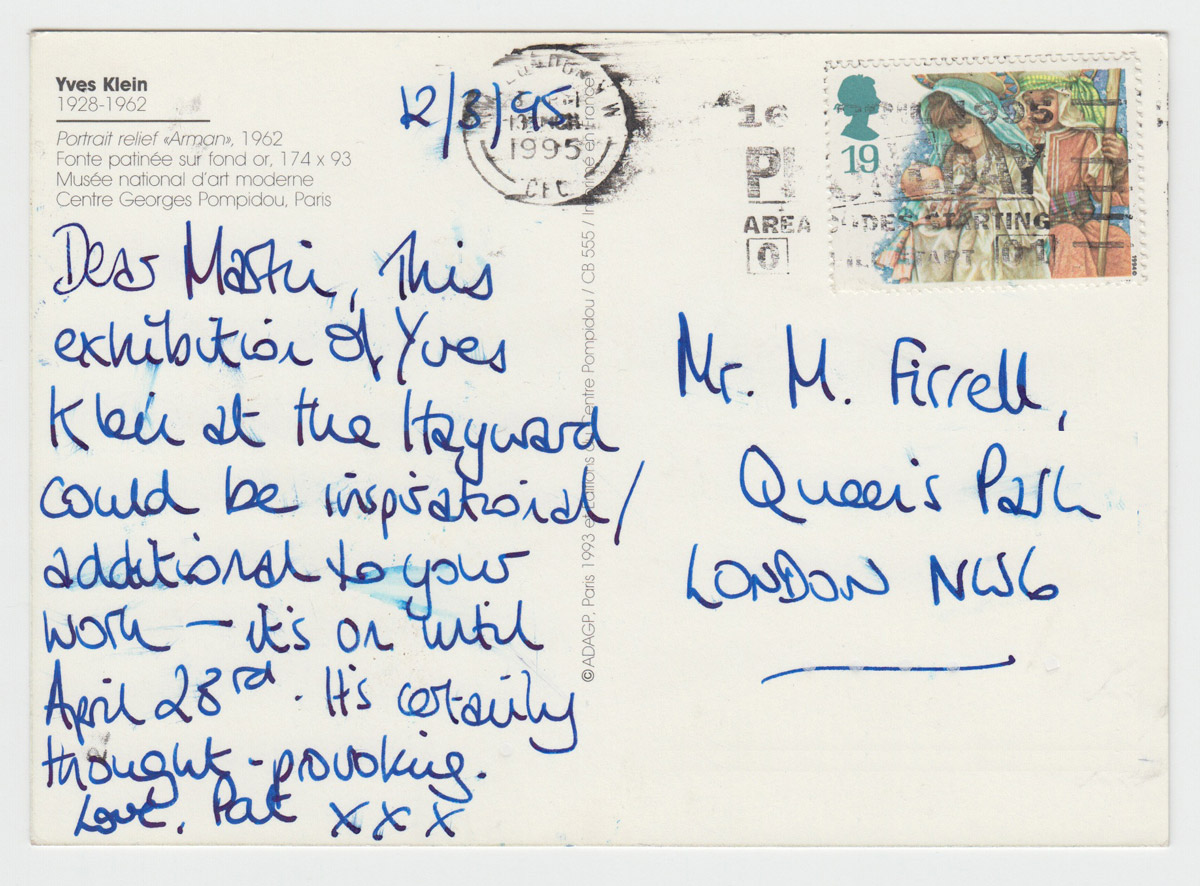 Yves Klein
1928-1962
Portrait relief «Arman», 1962
Fonte patinée sur fond or, 174 x 93
Musée national d'art moderne
Centre Georges Pompidou, Paris
12/3/95
Dear Martin, This
exhibition of Yves
Klein at the Hayward
could be inspirational/
additional to your
work – it's on until
April 23rd. It's certainly
thought-provoking.
Love, Pat xxx
©ADAGP, Paris 1993 et Editions Centre Pompidou / CB 555 /
1995
16
1995
DAY
AREA STARTING
0
01
19
1994
Mr. M. Firrell,
Queen's Park
LONDON NW6